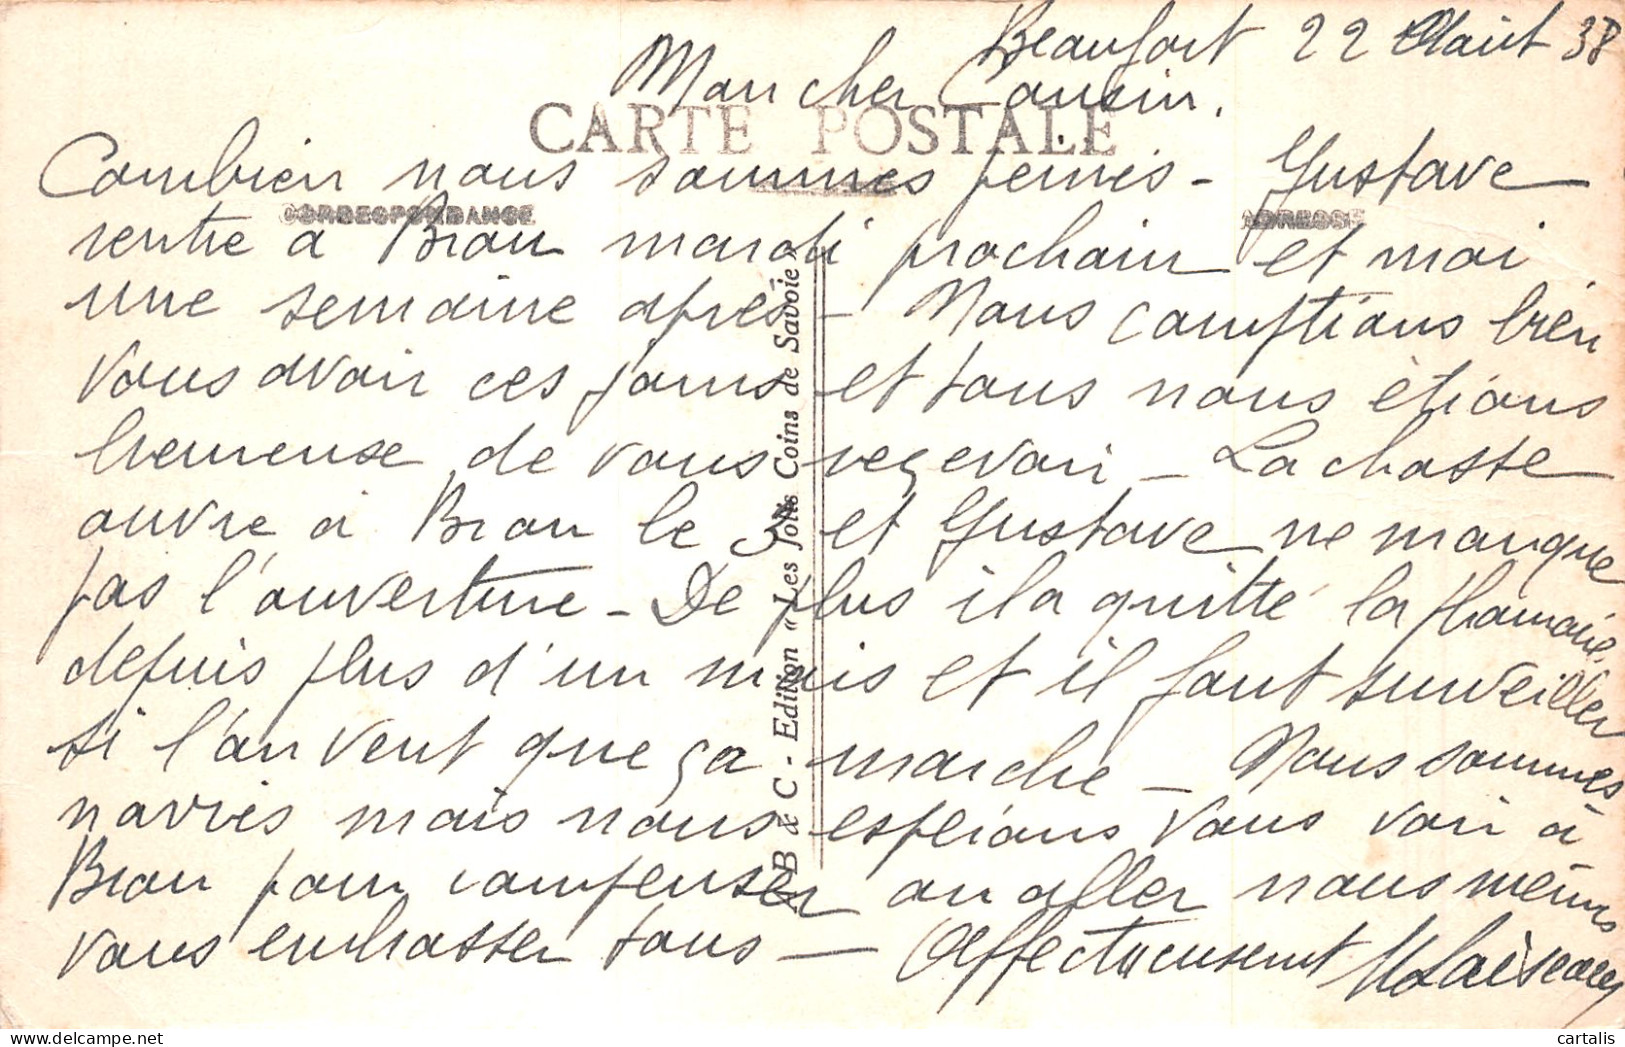 Beaufort 22 Août 38
Mon cher Cousin,
CARTE POSTALE
Combien nous sommes peinés - Gustave
CORRESPONDANCE ADRESSE
rentre à Bron mardi prochain et moi
une semaine après - Nous comptions bien
vous avoir ces jours et tous nous étions
heureuse de vous reçevoir - La chasse
ouvre à Bron le 3 et Gustave ne manque
pas l'ouverture - De plus il a quitté la pharmacie
depuis plus d'un mois et il faut surveiller
si l'on veut que ça marche - Nous sommes
navrés mais nous espérons vous voir à
Bron pour compenser ou aller nous mêmes
vous embrasser tous - Affectueusement
B & C - Edition « Les Jolis Coins de Savoie »
cartalis